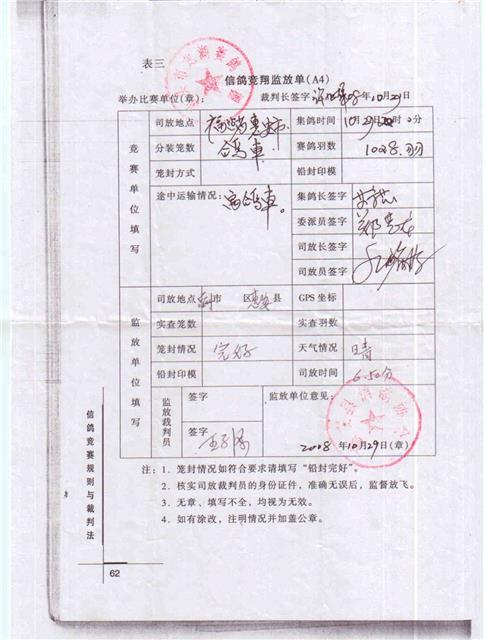 表三
信鸽竞翔监放单(A4)
举办比赛单位(章): 裁判长签字 08年10月29日
竞赛单位填写
司放地点 福 惠安 集鸽时间 10月 时 分
分装笼数 鸽車 赛鸽羽数 1028.羽
笼封方式 铅封印模
途中运输情况: 鸽車。 集鸽长签字
委派员签字
司放长签字
司放员签字
监放单位填写
司放地点 市 区惠安县 GPS坐标
实查笼数 实查羽数
笼封情况 完好 天气情况 晴
铅封印模 司放时间 6.50分
监放裁判员 签字 监放单位意见:
签字
2008年10月29日(章)
注: 1. 笼封情况如符合要求请填写“铅封完好”。
2. 核实司放裁判员的身份证件,准确无误后,监督放飞。
3. 无章、填写不全,均视为无效。
4. 如有涂改,注明情况并加盖公章。
信鸽竞赛规则与裁判法
62